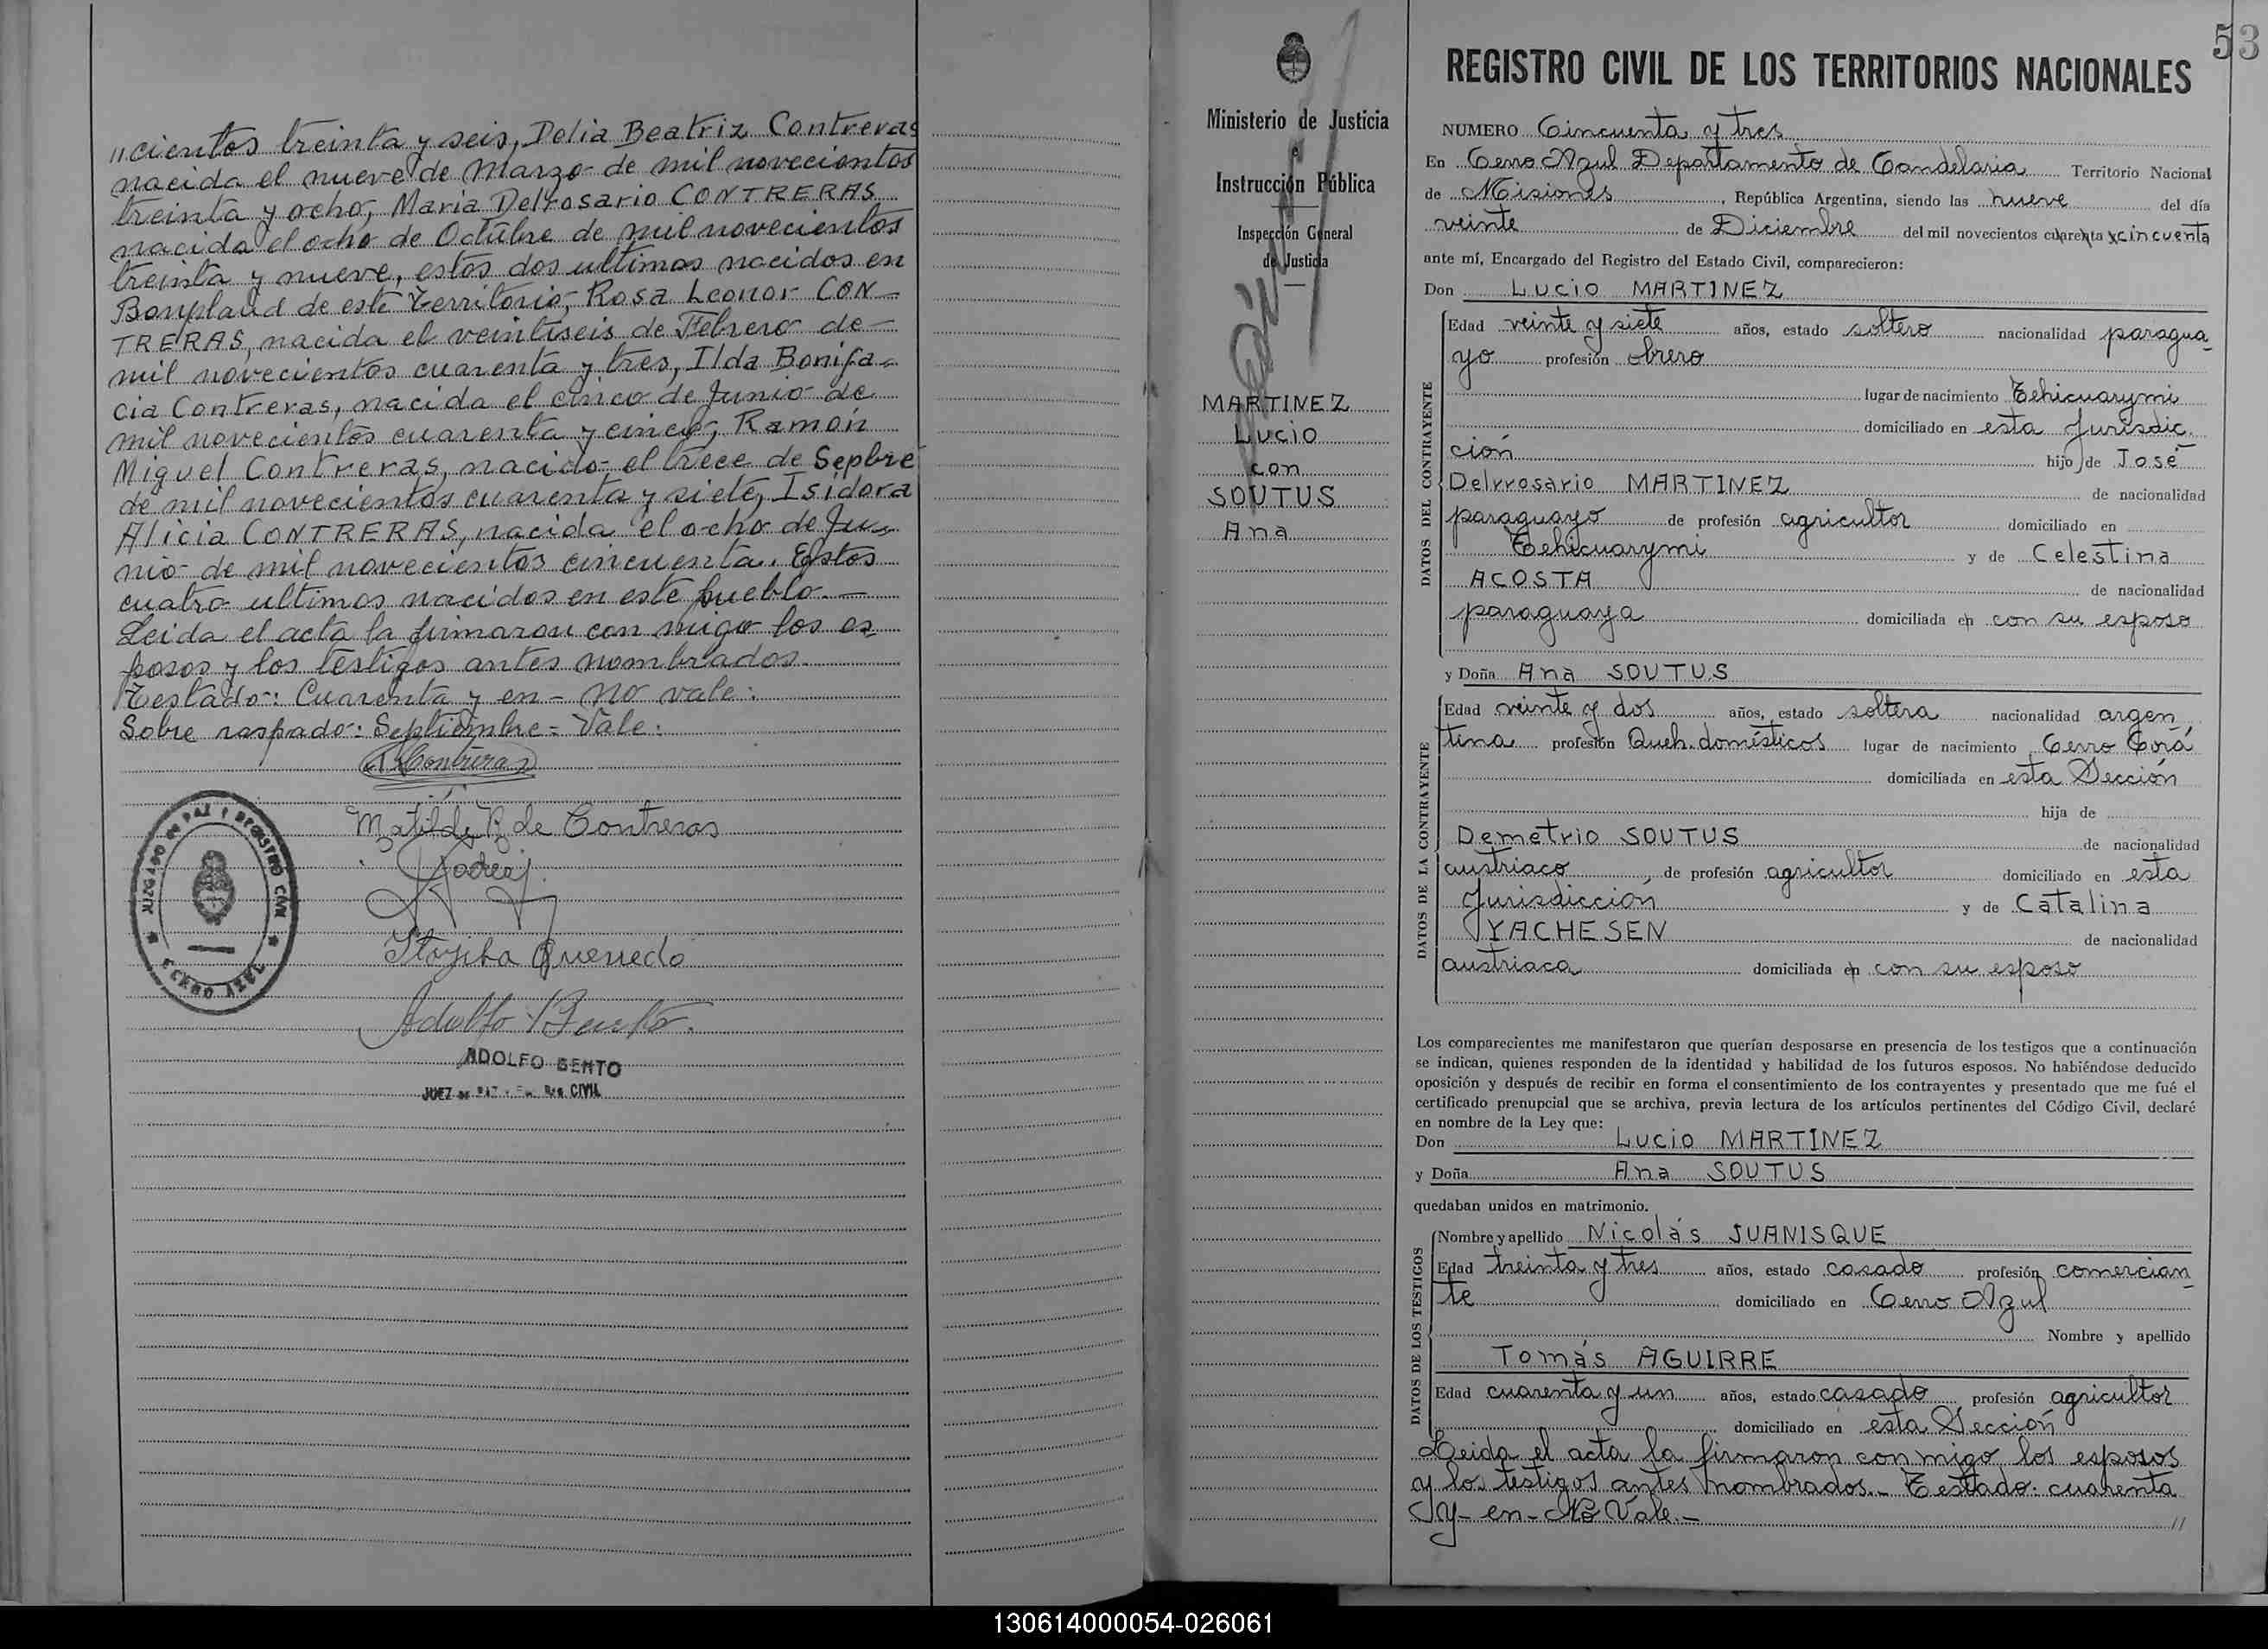 "cientos treinta y seis, Delia Beatriz Contreras
nacida el nueve de Marzo de mil novecientos
treinta y ocho, Maria Delrosario CONTRERAS
nacida el ocho de Octubre de mil novecientos
treinta y nueve, estos dos ultimos nacidos en
Bonpland de este Territorio, Rosa Leonor CON-
TRERAS, nacida el veintiseis de Febrero de-
mil novecientos cuarenta y tres, Ilda Bonifa-
cia Contreras, nacida el cinco de Junio de
mil novecientos cuarenta y cinco, Ramón
Miguel Contreras, nacido el trece de Sepbre
de mil novecientos cuarenta y siete, Isidora
Alicia CONTRERAS, nacida el ocho de Ju-
nio de mil novecientos cincuenta. Estos
cuatro ultimos nacidos en este pueblo.-
Leida el acta la firmaron con migo los es-
posos y los testigos antes nombrados.
Testado: Cuarenta y en - no vale:
Sobre raspado: Septiembre = Vale:
Contreras
Matilde R de Contreras
Quevedo
Adolfo Bento
JUZGADO DE PAZ Y REGISTRO CIVIL
CERRO AZUL
ADOLFO BENTO
JUEZ DE PAZ REG CIVIL
Ministerio de Justicia
e
Instrucción Pública
Inspección General
de Justicia
MARTINEZ
Lucio
con
SOUTUS
Ana
53
REGISTRO CIVIL DE LOS TERRITORIOS NACIONALES
NUMERO Cincuenta y tres
En Cerro Azul Departamento de Candelaria Territorio Nacional
de Misiones, República Argentina, siendo las nueve del día
veinte de Diciembre del mil novecientos cuarenta y cincuenta
ante mí, Encargado del Registro del Estado Civil, comparecieron:
Don Lucio MARTINEZ
DATOS DEL CONTRAYENTE
Edad veinte y siete años, estado soltero nacionalidad paragua-
yo profesión obrero
lugar de nacimiento Tehicuarymi
domiciliado en esta Jurisdic-
ción hijo de José
Delrrosario MARTINEZ de nacionalidad
paraguayo de profesión agricultor domiciliado en
Tehicuarymi y de Celestina
ACOSTA de nacionalidad
paraguaya domiciliada en con su esposo
y Doña Ana SOUTUS
DATOS DE LA CONTRAYENTE
Edad veinte y dos años, estado soltera nacionalidad argen
tina profesión Queh. domésticos lugar de nacimiento Cerro Corá
domiciliada en esta Sección
hija de
Demetrio SOUTUS de nacionalidad
austriaco, de profesión agricultor domiciliado en esta
Jurisdicción y de Catalina
YACHESEN de nacionalidad
austriaca domiciliada en con su esposo
Los comparecientes me manifestaron que querían desposarse en presencia de los testigos que a continuación
se indican, quienes responden de la identidad y habilidad de los futuros esposos. No habiéndose deducido
oposición y después de recibir en forma el consentimiento de los contrayentes y presentado que me fué el
certificado prenupcial que se archiva, previa lectura de los artículos pertinentes del Código Civil, declaré
en nombre de la Ley que:
Don Lucio MARTINEZ
y Doña Ana SOUTUS
quedaban unidos en matrimonio.
DATOS DE LOS TESTIGOS
Nombre y apellido Nicolás JUANISQUE
Edad treinta y tres años, estado casado profesión comercian-
te domiciliado en Cerro Azul
Nombre y apellido
Tomás AGUIRRE
Edad cuarenta y un años, estado casado profesión agricultor
domiciliado en esta Sección
Leida el acta la firmaron con migo los esposos
y los testigos antes nombrados.- Testado: cuarenta
y- en- No Vale.- //
130614000054-026061